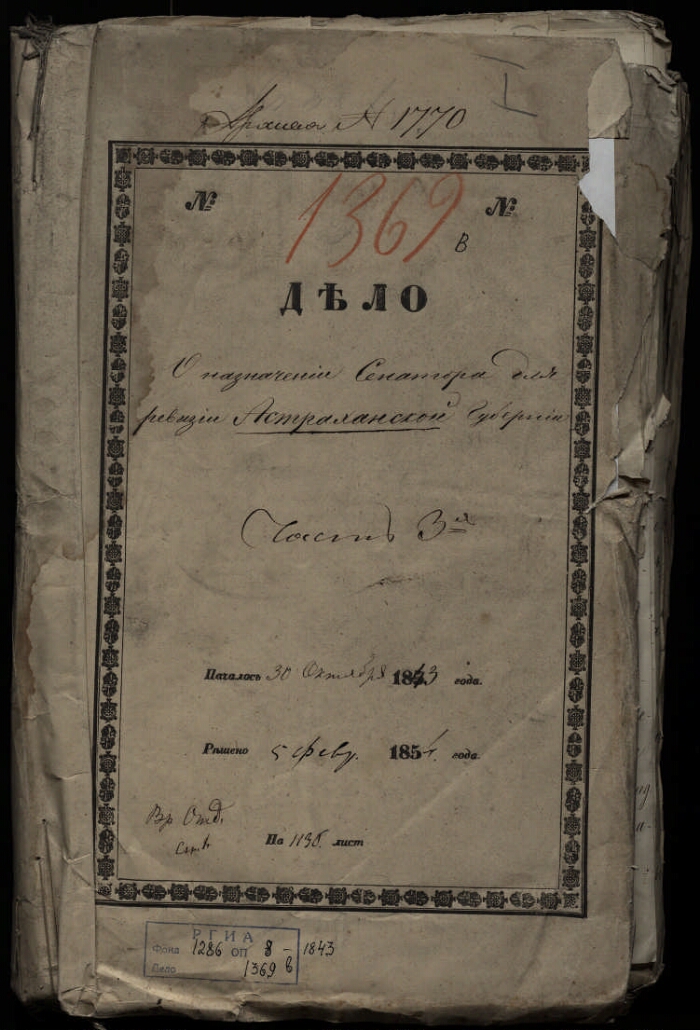 Архива № 1770
№ 1369 в №
ДѢЛО
О назначеніи Сенатора для
ревизіи Астраханской Губерніи
Часть 3я
Началось 30 Октября 1843 года.
Рѣшено 5 февр. 1854 года.
Вр Отд.
На 1136 лист
РГИА
Фонд 1286 оп 8 - 1843
Дело 1369 в